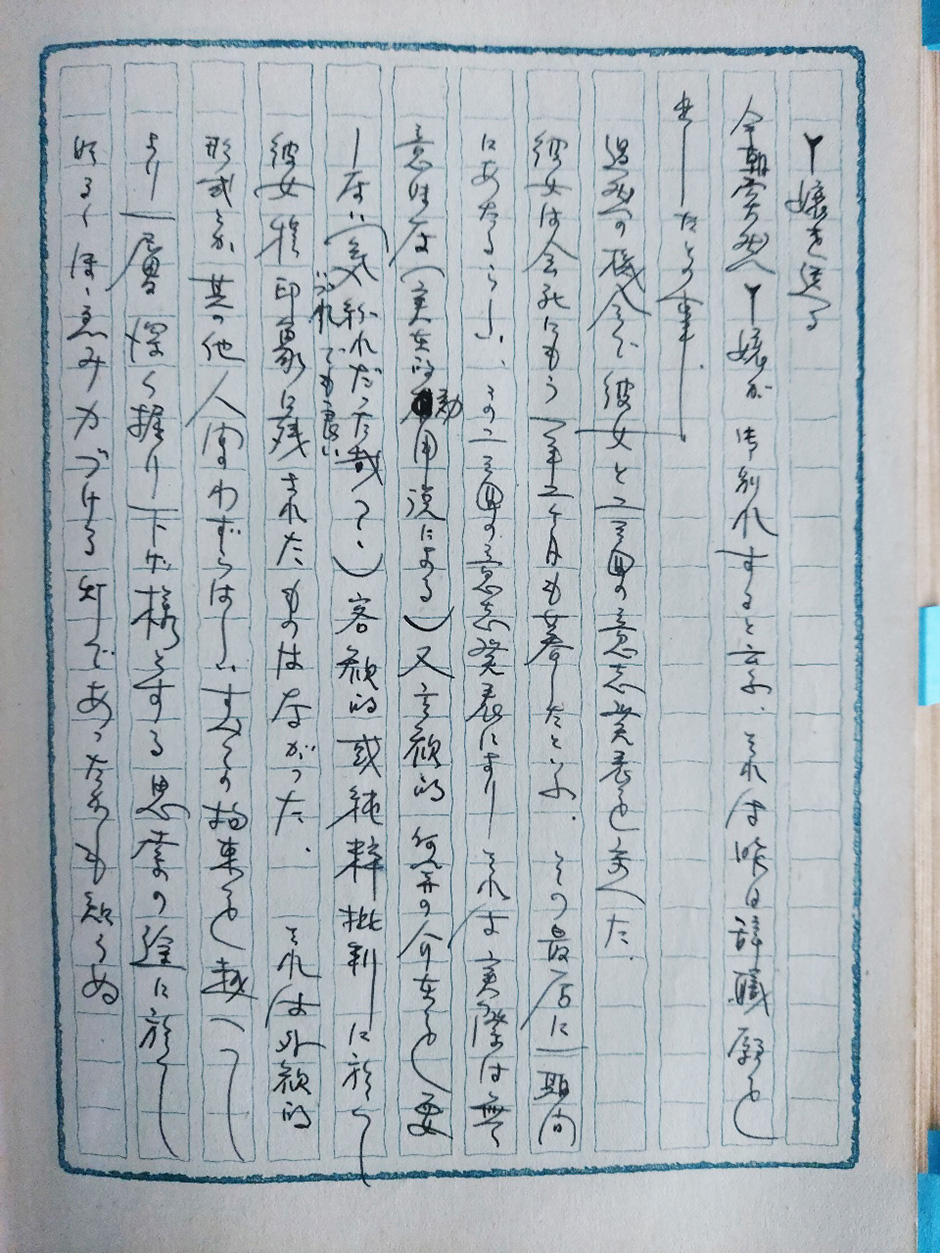 Y嬢を送る
今朝突然Y嬢が御別れすると云ふ、それは昨日辞職願を
出したとの事.
過去の機会で彼女と二三回の意志発表を交へた.
彼女は会社にもう一年二ケ月も暮したといふ. その最后に一期間
にあたるらしい、その二三回の意志発表により それは実際は無
意味な(実在的効用説による)又主観的 何等の介在を要
しない(気紛れだった哉?、)客観的或純粋批判に於て
いづれでも良い
彼女程印象に残されたものはなかった. それは外観的
形式とか其の他人間わずらはしいすべての拘束を越へて
より一層深く掘り下げ様とする思索の途に於て
明るくほゝゑみかづける灯であったかも知らぬ